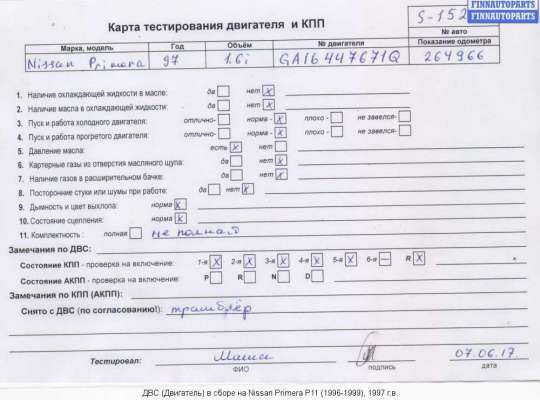 Карта тестирования двигателя и КПП
S-152
FINNAUTOPARTS
FINNAUTOPARTS
№ авто
Марка, модель Год Объём № двигателя Показание одометра
Nissan Primera 97 1.6i GA16 447671Q 264966
1. Наличие охлаждающей жидкости в масле: да нет X
2. Наличие масла в охлаждающей жидкости: да нет X
3. Пуск и работа холодного двигателя: отлично- норма - X плохо - не завелся-
4. Пуск и работа прогретого двигателя: отлично- норма - X плохо - не завелся-
5. Давление масла: есть X нет
6. Картерные газы из отверстия масляного щупа: да нет X
7. Наличие газов в расширительном бачке: да нет X
8. Посторонние стуки или шумы при работе: да нет X
9. Дымность и цвет выхлопа: норма X
10. Состояние сцепления: норма X
11. Комплектность : полная не полная
Замечания по ДВС:
Состояние КПП - проверка на включение: 1-я X 2-я X 3-я X 4-я X 5-я X 6-я — R X
Состояние АКПП - проверка на включение: P R N D
Замечания по КПП (АКПП):
Снято с ДВС (по согласованию!): трамблёр
Тестировал: Миша 07.06.17.
ФИО подпись дата
ДВС (Двигатель) в сборе на Nissan Primera P11 (1996-1999), 1997 г.в.